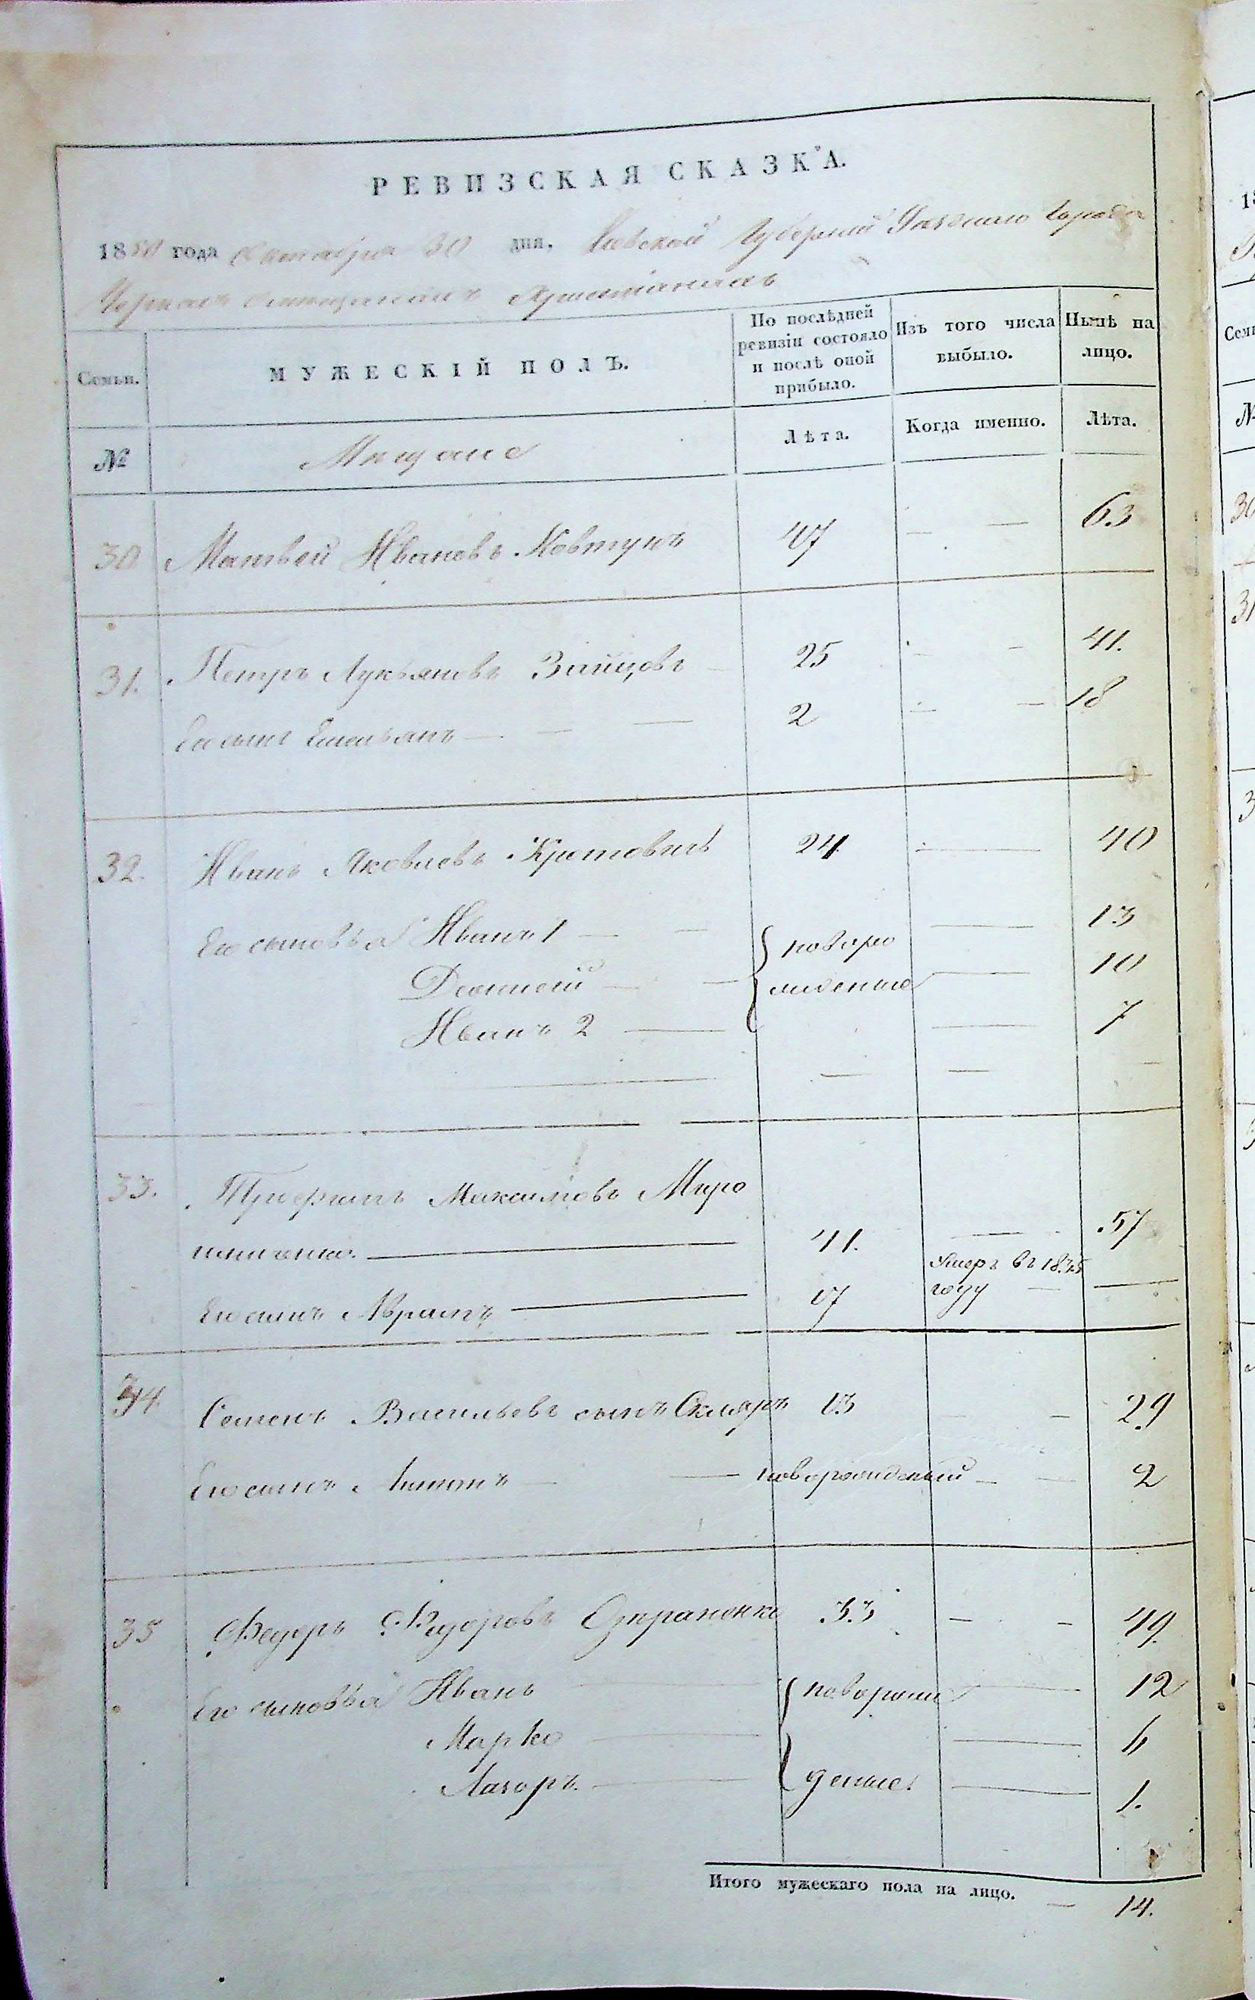 РЕВИЗСКАЯ СКАЗКА.
1850 года Октября 30 дня. Киевской Губернии Уѣзднаго Города
Черкасъ христіанахъ
Семьи. МУЖЕСКІЙ ПОЛЪ. По послѣдней ревизіи состояло и послѣ оной прибыло. Изъ того числа выбыло. Нынѣ на лицо.
№ Мѣщане Лѣта. Когда именно. Лѣта.
30 Матвей Ивановъ Ковтунъ 47 — — 63
31. Петръ Лукьяновъ Зайцовъ 25 — — 41.
Его сынъ Емельянъ — — 2 — — 18
32. Иванъ Яковлевъ Кротовичъ 24 — 40
Его сыновья Иванъ 1 — новоро — 13
Дионисій — жденые — 10
Иванъ 2 — — 7
33. Трофимъ Максимовъ Миро
шниченко. — 41. — 57
Его сынъ Абрамъ — 17 Умеръ въ 1835 году —
34 Семенъ Васильевъ сынъ Скляръ 13 — — 29
Его сынъ Антонъ — новорожденный — — 2
35 Федоръ Федоровъ Страпенко 33 — — 49
Его сыновья Иванъ новорож — 12
Марко — — 6
Лазоръ. — деные — 1.
Итого мужескаго пола на лицо. — 14.